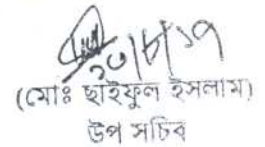 ২০/৮/১৭
(মোঃ ছাইফুল ইসলাম)
উপ সচিব